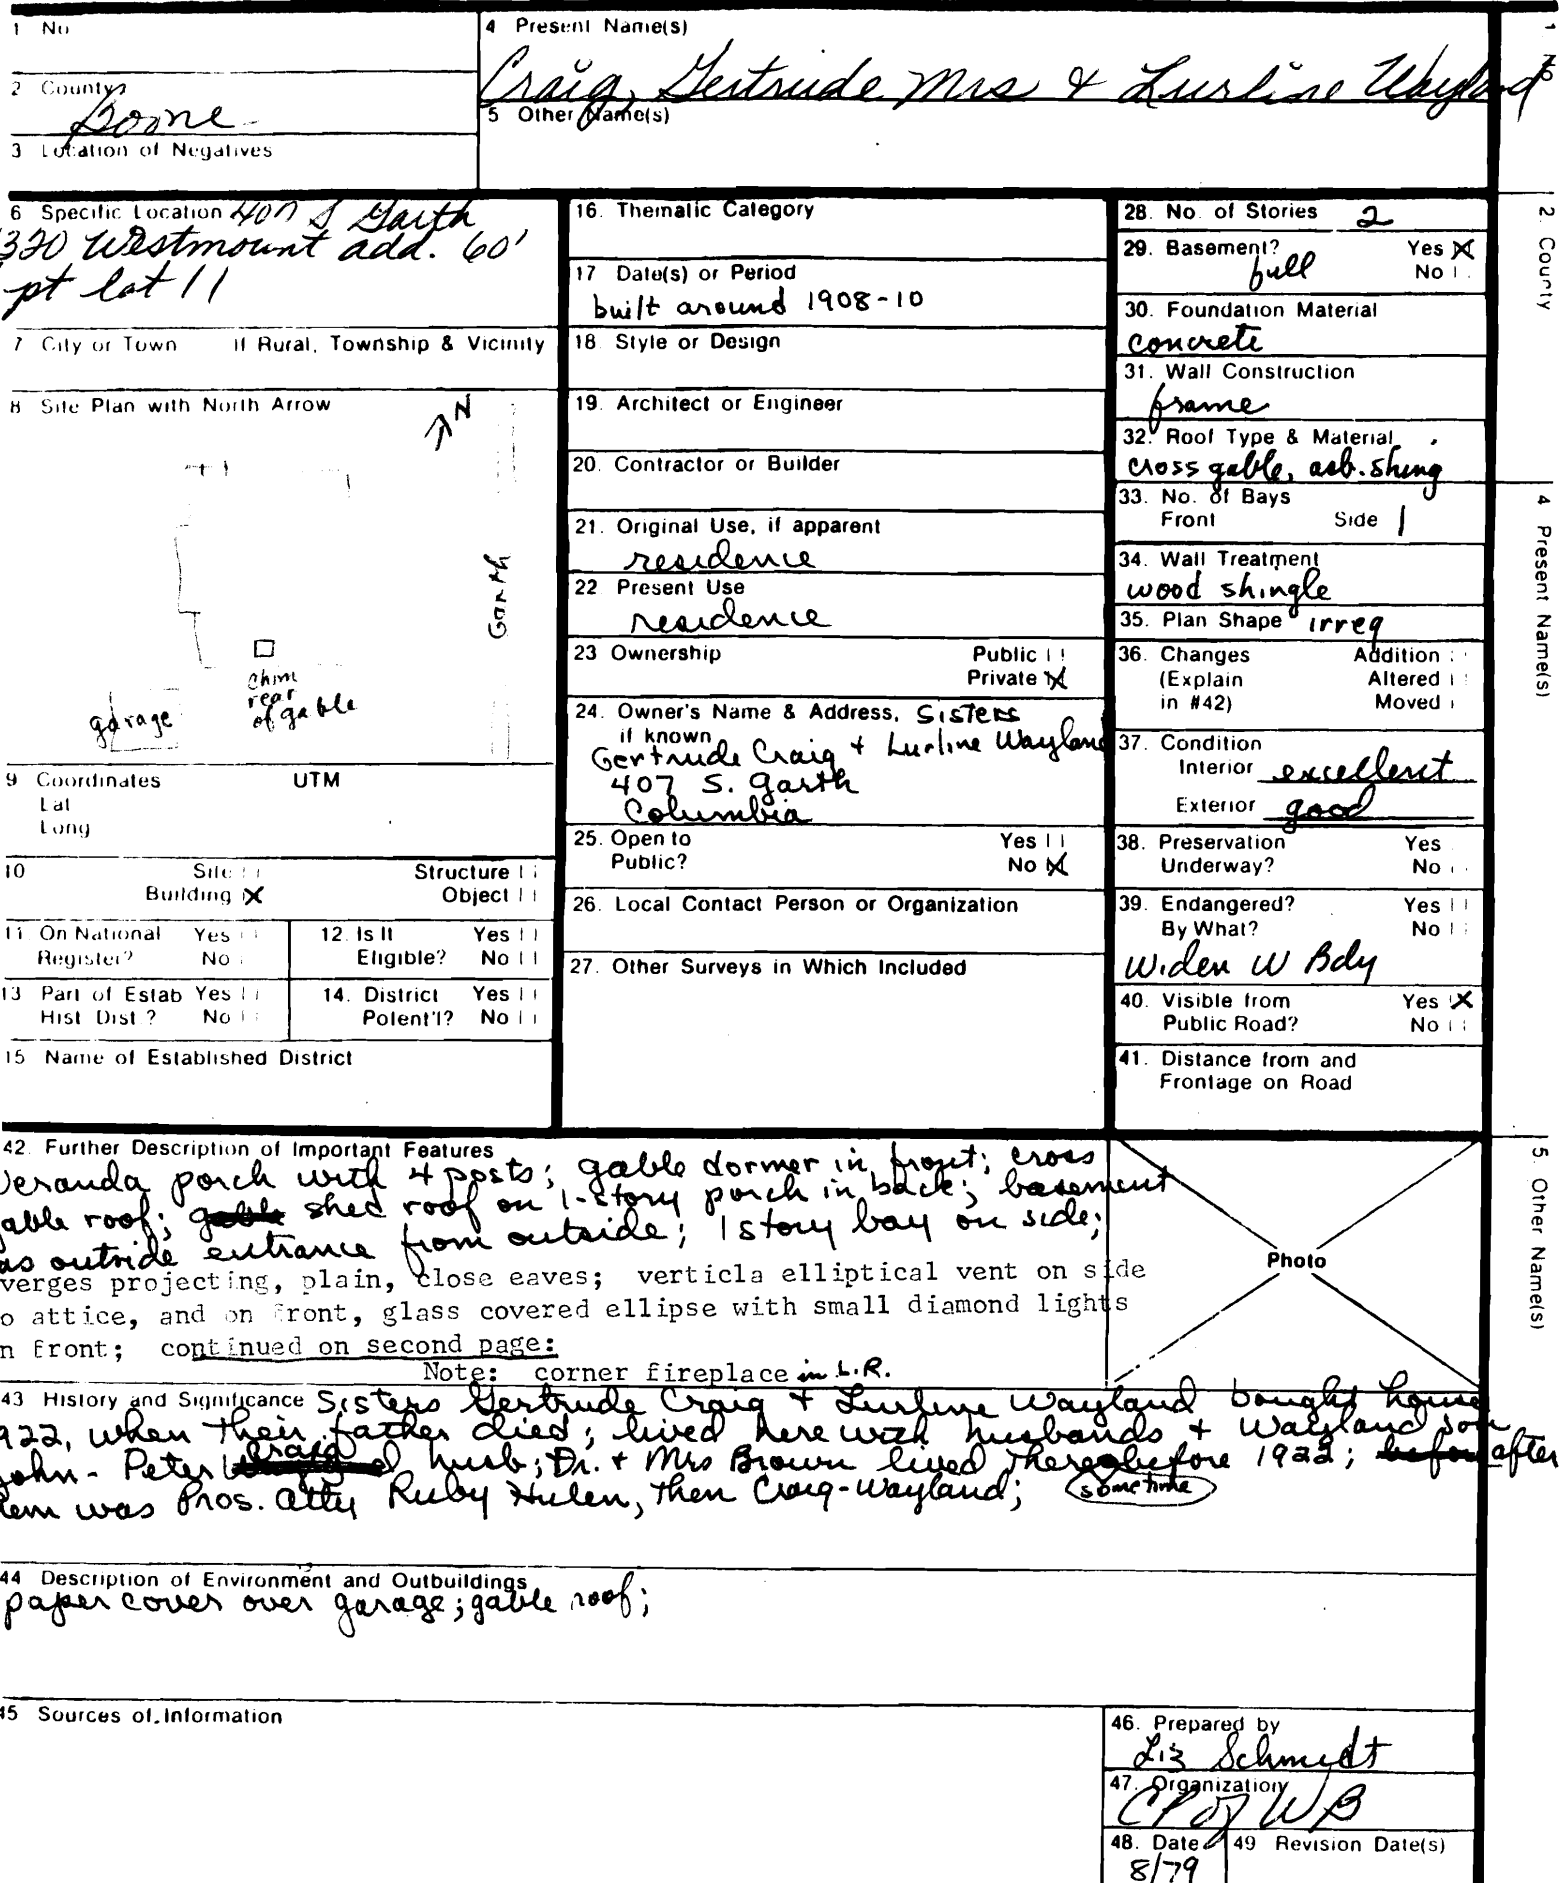 1 No
4 Present Name(s)
Craig, Gertrude Mrs & Lurline Wayland
2 County
Boone
5 Other Name(s)
3 Location of Negatives
6 Specific Location 407 S Garth
320 Westmount add. 60'
pt lot 11
7 City or Town if Rural, Township & Vicinity
8 Site Plan with North Arrow
N
Garth
chim
rear
of gable
garage
9 Coordinates UTM
Lat
Long
10 Site Structure
Building X Object
11 On National Register? Yes No
12. Is It Eligible? Yes No
13 Part of Estab Hist Dist? Yes No
14. District Potent'l? Yes No
15 Name of Established District
16. Thematic Category
17 Date(s) or Period
built around 1908-10
18. Style or Design
19. Architect or Engineer
20. Contractor or Builder
21. Original Use, if apparent
residence
22 Present Use
residence
23 Ownership Public
Private X
24. Owner's Name & Address, Sisters
if known
Gertrude Craig + Lurline Wayland
407 S. Garth
Columbia
25. Open to Yes
Public? No X
26. Local Contact Person or Organization
27. Other Surveys in Which Included
28. No. of Stories 2
29. Basement? Yes X
full No
30. Foundation Material
concrete
31. Wall Construction
frame
32. Roof Type & Material
cross gable, asb. shing
33. No. of Bays
Front Side 1
34. Wall Treatment
wood shingle
35. Plan Shape irreg
36. Changes Addition
(Explain Altered
in #42) Moved
37. Condition
Interior excellent
Exterior good
38. Preservation Yes
Underway? No
39. Endangered? Yes
By What? No
Widen W Bdy
40. Visible from Yes X
Public Road? No
41. Distance from and
Frontage on Road
42. Further Description of Important Features
Veranda porch with 4 posts; gable dormer in front; cross
gable roof; shed roof on 1-story porch in back; basement
as outside entrance from outside; 1 story bay on side;
verges projecting, plain, close eaves; verticla elliptical vent on side
o attice, and on front, glass covered ellipse with small diamond lights
n front; continued on second page:
Note: corner fireplace in L.R.
Photo
43 History and Significance Sisters Gertrude Craig + Lurline Wayland bought house
922, when their father died; lived here with husbands + Wayland son
John - Peter Craig husb; Dr. + Mrs Brown lived there before 1922; after
em was Pros. Atty Ruby Hulen, then Craig-Wayland; sometime
44 Description of Environment and Outbuildings
paper cover over garage; gable roof;
45 Sources of Information
46. Prepared by
Liz Schmidt
47. Organization
48. Date
8/79
49 Revision Date(s)
1 No
2. County
4 Present Name(s)
5. Other Name(s)